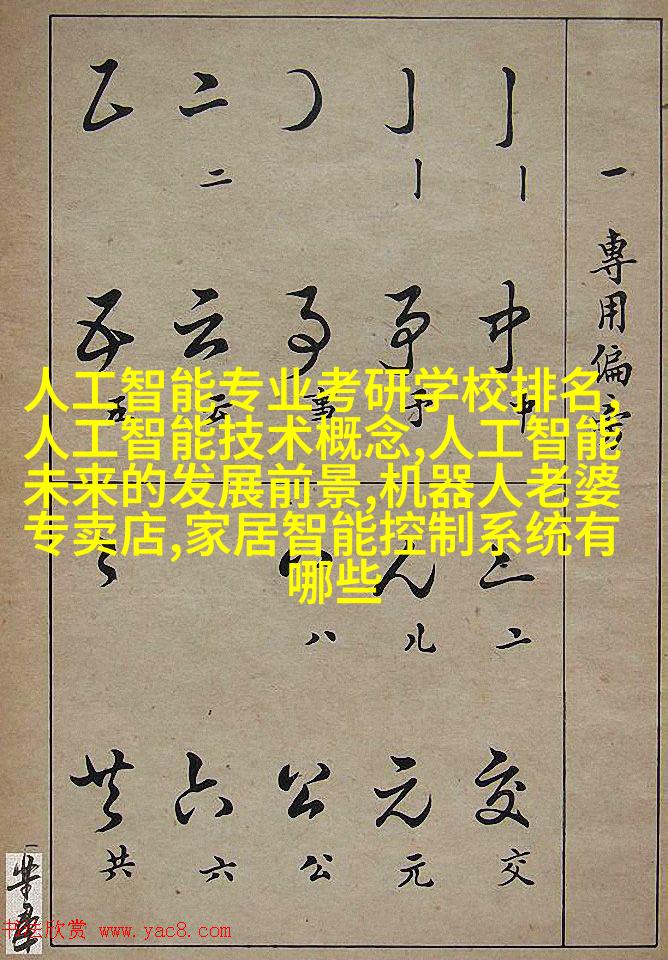 一 專用偏旁
丨 丨 二
中 中 予 事 事 云 云 五 五
人工智能专业考研学校排名,
人工智能技术概念,人工智能
未来的发展前景,机器人老婆
专卖店,家居智能控制系统有
哪些
儿 八
交 元 公 六 共
交 元 公 六 共
书法欣赏 www.yac8.com